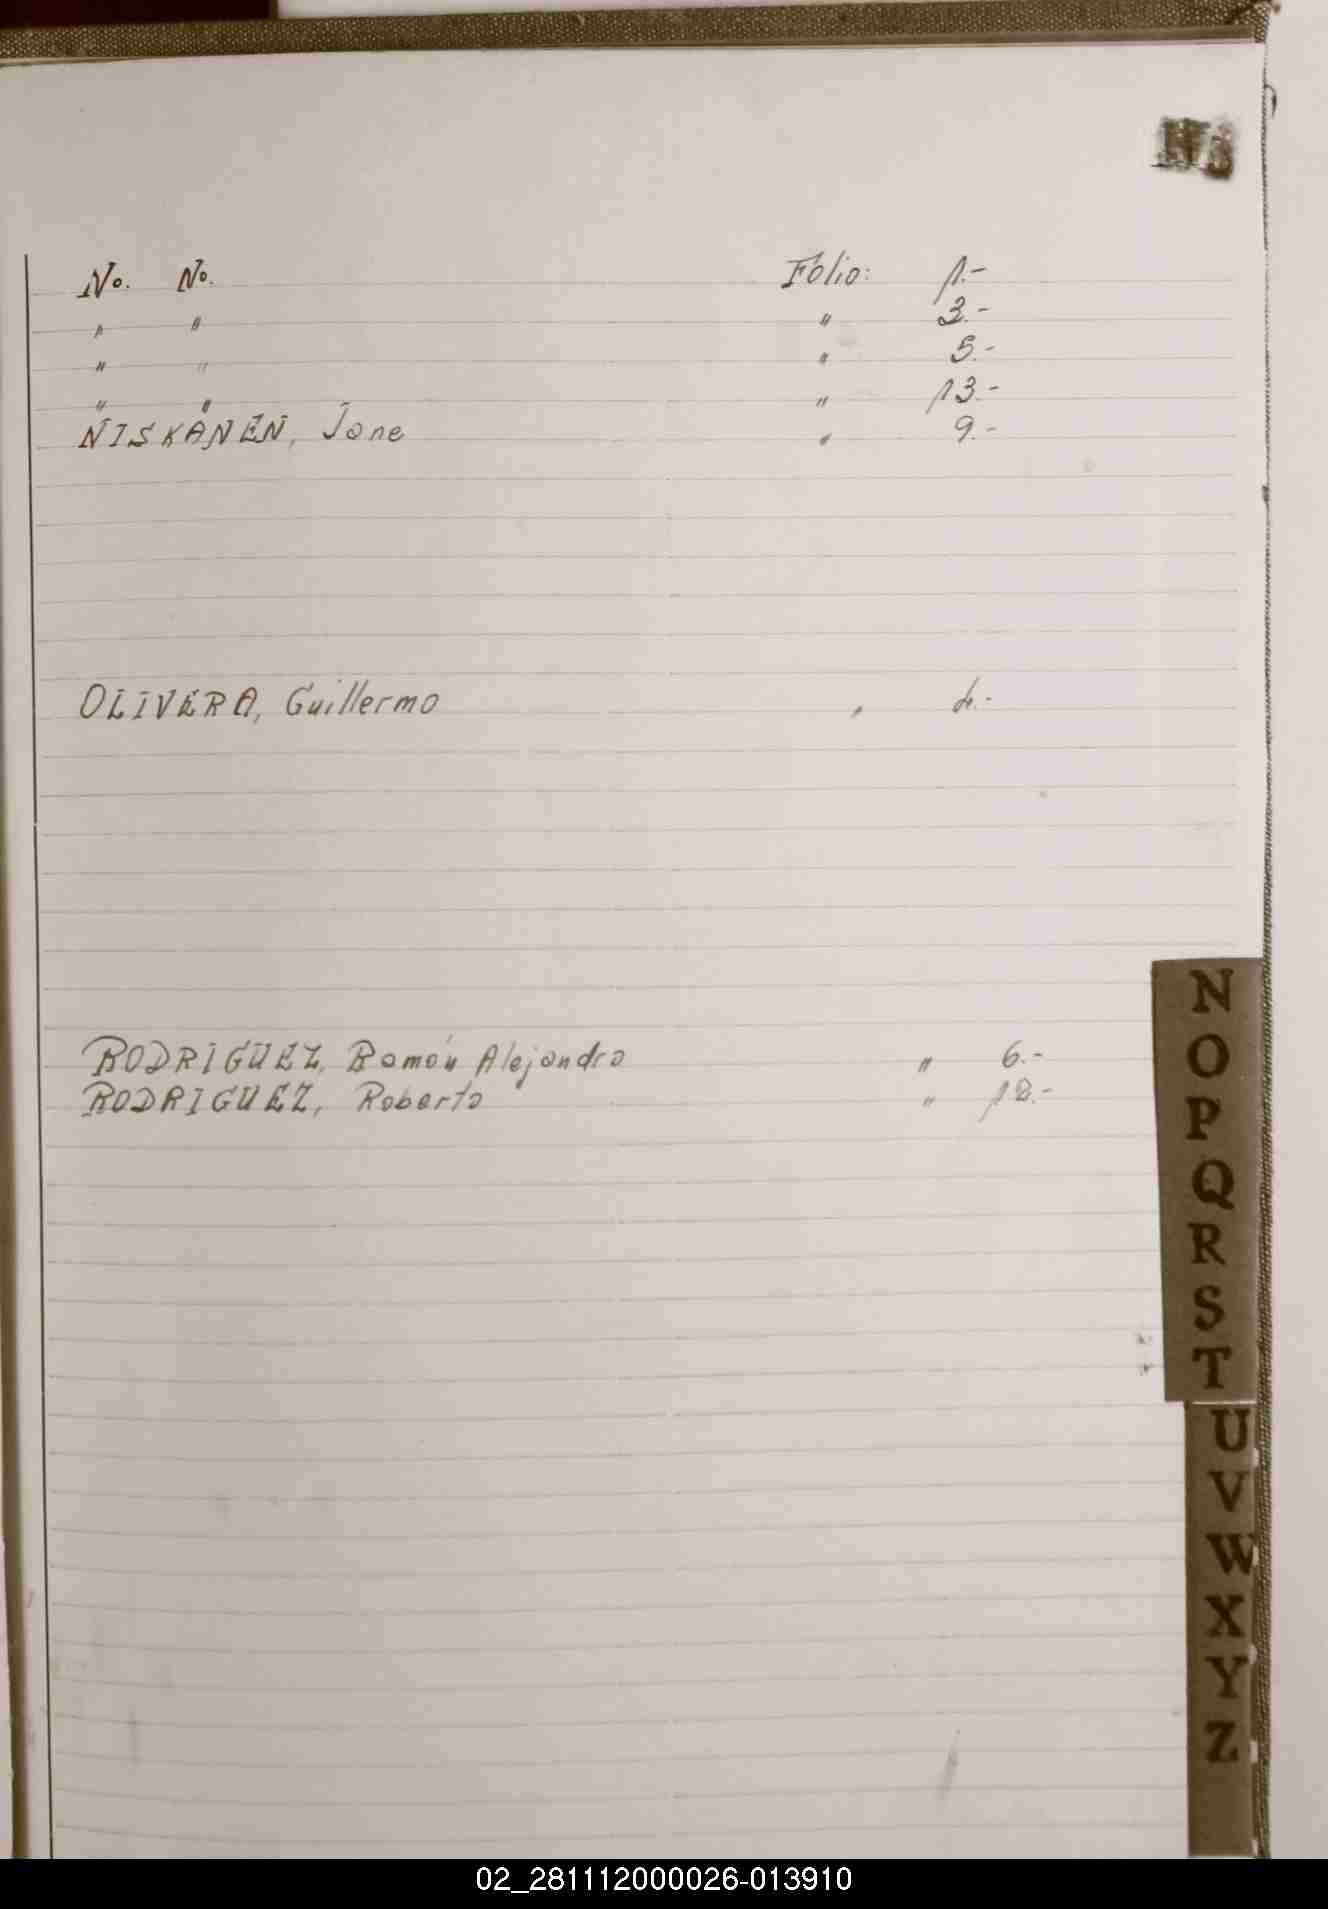 No. No. Folio: 1.-
" " " 3.-
" " " 5.-
" " " 13.-
NISKANEN, Jane " 9.-
OLIVERA, Guillermo "
RODRIGUEZ, Ramón Alejandro " 6.-
RODRIGUEZ, Roberto " 12.-
N
O
P
Q
R
S
T
U
V
W
X
Y
Z
02_281112000026-013910